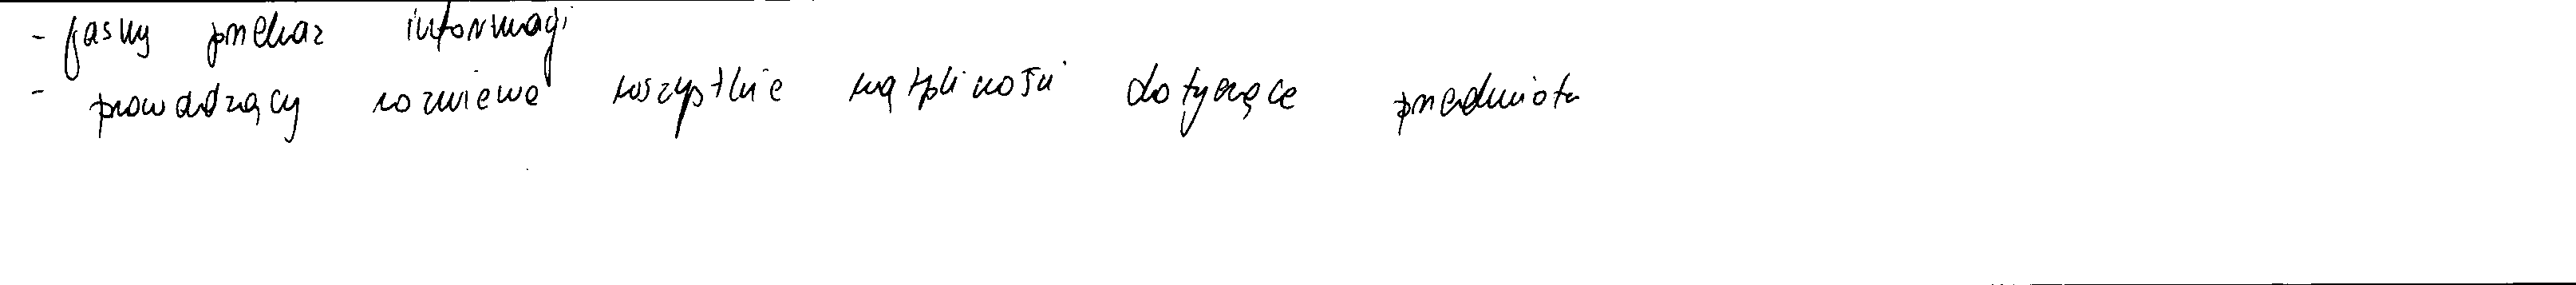 - jasny przekaz informacji
- prowadzący rozwiewa wszystkie wątpliwości dotyczące przedmiotu